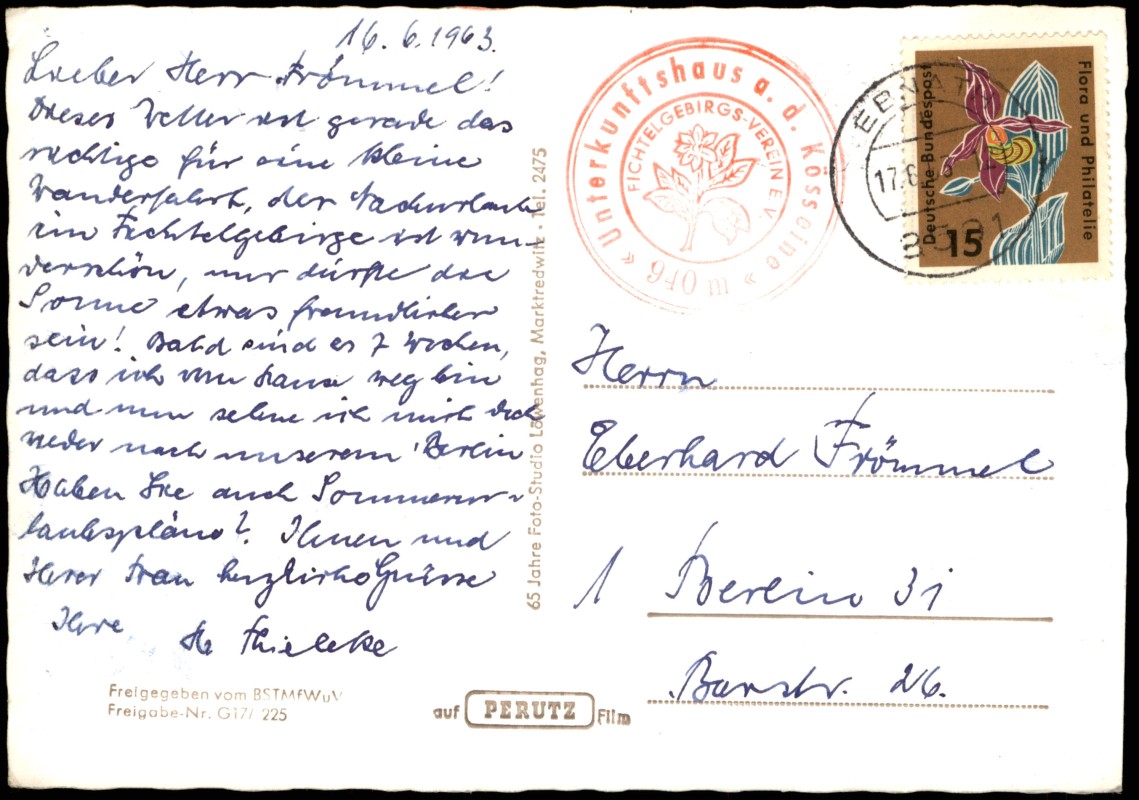 16.6.1963.
Lieber Herr Frömmel!
Dieses Wetter ist gerade das
richtige für eine kleine
Wanderfahrt, der Nachurlaub
im Fichtelgebirge ist wun-
derschön, nur dürfte die
Sonne etwas freundlicher
sein! Bald sind es 7 Wochen,
dass ich von Hause weg bin
und nun sehne ich mich doch
wieder nach unserem Berlin
Haben Sie auch Sommerur-
laubspläne? Ihnen und
Ihrer Frau herzliche Grüsse
Ihre
Thielcke
Freigegeben vom BSTMfWuV
Freigabe-Nr. G17/ 225
auf PERUTZ Film
65 Jahre Foto-Studio Löwenhag, Marktredwitz · Tel. 2475
Unterkunftshaus a. d. Kösseine
FICHTELGEBIRGS-VEREIN E.V.
940 m
EBNATH
17.6.
8591
Deutsche Bundespost
Flora und Philatelie
15
Herrn
Eberhard Frömmel
1 Berlin 31
Barstr. 26.